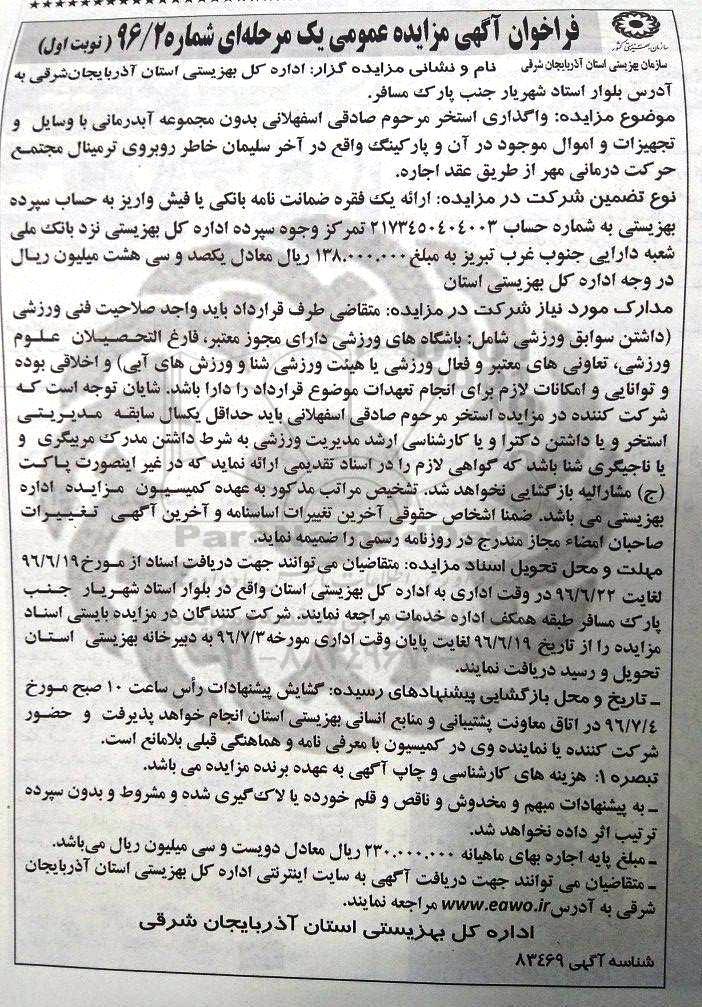 فراخوان آگهی مزایده عمومی یک مرحله‌ای شماره ۹۶/۲ ( نوبت اول)
سازمان بهزیستی کشور
سازمان بهزیستی استان آذربایجان شرقی
نام و نشانی مزایده گزار: اداره کل بهزیستی استان آذربایجان‌شرقی به
آدرس بلوار استاد شهریار جنب پارک مسافر.
موضوع مزایده: واگذاری استخر مرحوم صادقی اسفهلانی بدون مجموعه آبدرمانی با وسایل و
تجهیزات و اموال موجود در آن و پارکینگ واقع در آخر سلیمان خاطر روبروی ترمینال مجتمع
حرکت درمانی مهر از طریق عقد اجاره.
نوع تضمین شرکت در مزایده: ارائه یک فقره ضمانت نامه بانکی یا فیش واریز به حساب سپرده
بهزیستی به شماره حساب ۲۱۷۳۴۵۰۴۰۴۰۰۳ تمرکز وجوه سپرده اداره کل بهزیستی نزد بانک ملی
شعبه دارایی جنوب غرب تبریز به مبلغ ۱۳۸.۰۰۰.۰۰۰ ریال معادل یکصد و سی هشت میلیون ریال
در وجه اداره کل بهزیستی استان
مدارک مورد نیاز شرکت در مزایده: متقاضی طرف قرارداد باید واجد صلاحیت فنی ورزشی
(داشتن سوابق ورزشی شامل: باشگاه های ورزشی دارای مجوز معتبر، فارغ التحصیلان علوم
ورزشی، تعاونی های معتبر و فعال ورزشی یا هیئت ورزشی شنا و ورزش های آبی) و اخلاقی بوده
و توانایی و امکانات لازم برای انجام تعهدات موضوع قرارداد را دارا باشد. شایان توجه است که
شرکت کننده در مزایده استخر مرحوم صادقی اسفهلانی باید حداقل یکسال سابقه مدیریتی
استخر و یا داشتن دکترا و یا کارشناسی ارشد مدیریت ورزشی به شرط داشتن مدرک مربیگری و
یا ناجیگری شنا باشد که گواهی لازم را در اسناد تقدیمی ارائه نماید که در غیر اینصورت پاکت
(ج) مشارالیه بازگشایی نخواهد شد. تشخیص مراتب مذکور به عهده کمیسیون مزایده اداره
بهزیستی می باشد. ضمنا اشخاص حقوقی آخرین تغییرات اساسنامه و آخرین آگهی تغییرات
صاحبان امضاء مجاز مندرج در روزنامه رسمی را ضمیمه نماید.
مهلت و محل تحویل اسناد مزایده: متقاضیان می توانند جهت دریافت اسناد از مورخ ۹۶/۶/۱۹
لغایت ۹۶/۶/۲۲ در وقت اداری به اداره کل بهزیستی استان واقع در بلوار استاد شهریار جنب
پارک مسافر طبقه همکف اداره خدمات مراجعه نمایند. شرکت کنندگان در مزایده بایستی اسناد
مزایده را از تاریخ ۹۶/۶/۱۹ لغایت پایان وقت اداری مورخه ۹۶/۷/۳ به دبیرخانه بهزیستی استان
تحویل و رسید دریافت نمایند.
ـ تاریخ و محل بازگشایی پیشنهادهای رسیده: گشایش پیشنهادات رأس ساعت ۱۰ صبح مورخ
۹۶/۷/۴ در اتاق معاونت پشتیبانی و منابع انسانی بهزیستی استان انجام خواهد پذیرفت و حضور
شرکت کننده یا نماینده وی در کمیسیون با معرفی نامه و هماهنگی قبلی بلامانع است.
تبصره ۱: هزینه های کارشناسی و چاپ آگهی به عهده برنده مزایده می باشد.
ـ به پیشنهادات مبهم و مخدوش و ناقص و قلم خورده یا لاک گیری شده و مشروط و بدون سپرده
ترتیب اثر داده نخواهد شد.
ـ مبلغ پایه اجاره بهای ماهیانه ۲۳۰.۰۰۰.۰۰۰ ریال معادل دویست و سی میلیون ریال می‌باشد.
ـ متقاضیان می توانند جهت دریافت آگهی به سایت اینترنتی اداره کل بهزیستی استان آذربایجان
شرقی به آدرس www.eawo.ir مراجعه نمایند.
اداره کل بهزیستی استان آذربایجان شرقی
شناسه آگهی ۸۳۴۶۹